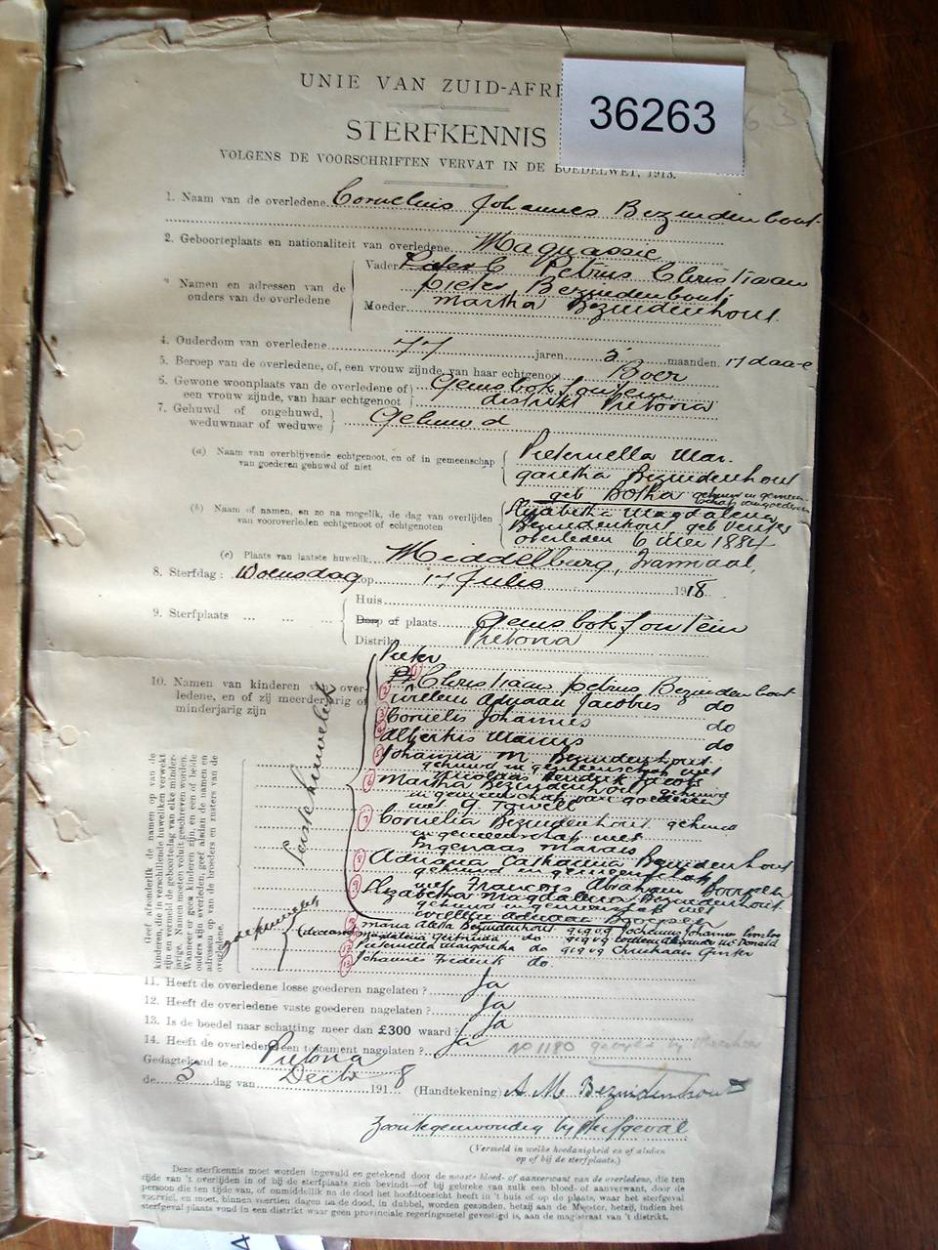 UNIE VAN ZUID-AFRI
36263
STERFKENNIS
VOLGENS DE VOORSCHRIFTEN VERVAT IN DE BOEDELWET, 1913.
1. Naam van de overledene Cornelius Johannes Bezuidenhout
2. Geboorteplaats en nationaliteit van overledene Maquassie
Namen en adressen van de ouders van de overledene
Vader Pieter C Petrus Christiaan
Pieter Bezuidenhout
Moeder Martha Bezuidenhout
4. Ouderdom van overledene 77 jaren maanden 17 dage
5. Beroep van de overledene, of, een vrouw zijnde, van haar echtgenoot Boer
6. Gewone woonplaats van de overledene of een vrouw zijnde, van haar echtgenoot Gemsbokfontein
distrikt Pretoria
7. Gehuwd of ongehuwd, weduwnaar of weduwe Gehuwd
(a) Naam van overblijvende echtgenoot, en of in gemeenschap van goederen gehuwd of niet
Pieternella Mar-
garetha Bezuidenhout
geb Botha gehuwd in gemeen-
schap van goederen
(b) Naam of namen, en zo na mogelik, de dag van overlijden van vooroverleden echtgenoot of echtgenoten
Elizabetha Magdalena
Bezuidenhout geb
overleden 6 Mei 1884
(c) Plaats van laatste huwelik Middelburg, Transvaal,
8. Sterfdag: Woensdag op 17 Julie 1918
9. Sterfplaats
Huis
Dorp of plaats Gemsbokfontein
Distrikt Pretoria
10. Namen van kinderen van overledene, en of zij meerderjarig of minderjarig zijn
Geef afzonderlik de namen op van de kinderen, die in verschillende huweliken verwekt zijn en vermeld de geboortedag van elke minderjarige. Namen moeten voluit geschreven worden. Wanneer er geen kinderen zijn, en een of beide ouders zijn overleden, geef alsdan de namen en adressen op van de broeders en zusters van de overledene.
Eerste huwelik
Pieter
1 Christiaan Petrus Bezuidenhout
2 Willem Adriaan Jacobus do
3 Cornelis Johannes do
4 Albertus Marius do
5 Johanna M. Bezuidenhout
gehuwd in gemeenschap met
Nicolaas Hendrik Jacobs
6 Martha Bezuidenhout gehuwd
in gemeenschap van goederen
met G.
7 Cornelia Bezuidenhout gehuwd
in gemeenschap met
Marais
8 Adriana Catharina Bezuidenhout
gehuwd in gemeenschap
met Francois Abraham
9 Elizabetha Magdalena Bezuidenhout
gehuwd in gemeenschap met
Willem Adriaan
2de huwelik
Maria Aletta Bezuidenhout geh Jochemus Johannes
Magdalena Gertruida do
Pieternella Margaretha do Christiaan
Johannes Frederik do
11. Heeft de overledene losse goederen nagelaten? Ja
12. Heeft de overledene vaste goederen nagelaten? Ja
13. Is de boedel naar schatting meer dan £300 waard? Ja
14. Heeft de overledene een testament nagelaten? Ja
No 1180
Gedagtekend te Pretoria
de 3 dag van Decbr 1918
(Handtekening) A M Bezuidenhout
Zoon tegenwoordig bij sterfgeval
(Vermeld in welke hoedanigheid en of alsdan op of bij de sterfplaats.)
Deze sterfkennis moet worden ingevuld en getekend door de naaste bloed- of aanverwant van de overledene, die ten
tijde van 't overlijden in of bij de sterfplaats zich bevindt—of bij gebreke van zulk een bloed- of aanverwant, door de
persoon die ten tijde van, of onmiddellik na de dood het hoofdtoezicht heeft in 't huis of op de plaats, waar het sterfgeval
voorviel, en moet, binnen veertien dagen na de dood, in dubbel, worden gezonden, hetzij aan de Meester, hetzij, indien het
sterfgeval plaats vond in een distrikt waar geen provinciale regeringszetel gevestigd is, aan de magistraat van 't distrikt.